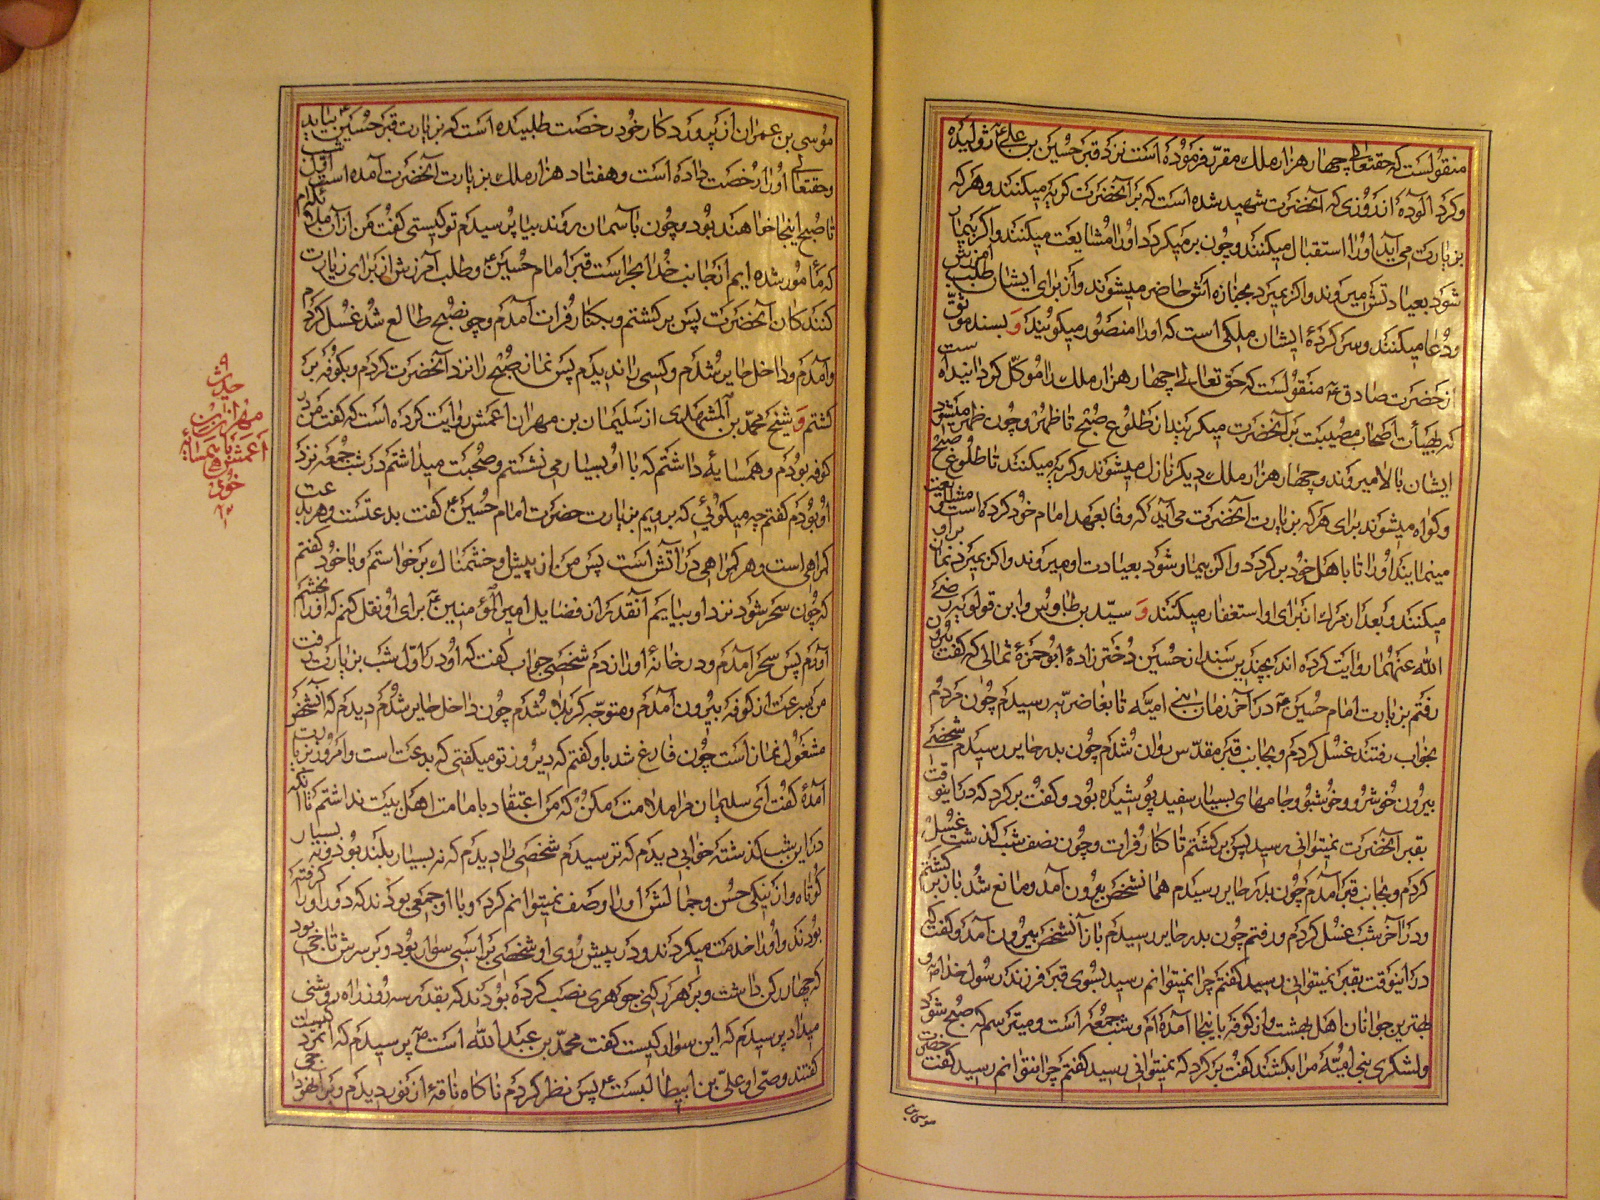 منقولست که حقتعالی چهار هزار ملک مقرر فرموده است نزد قبر حسین بن علی ژولیده
و گرد آلوده از روزی که آنحضرت شهید شده است که بر آنحضرت گریه میکنند و هر که
بزیارت می آید او را استقبال میکنند و چون بر میگردد او را مشایعت میکنند و اگر بیمار
شود بعیادتش میروند و اگر بمیرد بجنازه اش حاضر میشوند و از برای ایشان طلب آمرزش
و دعا میکنند و سرکردهٔ ایشان ملکی است که او را منصور میگویند و بسند موثق
از حضرت صادق ع منقولست که حق تعالی چهار هزار ملک را موکل گردانیده است
که بهیأت اصحاب مصیبت بر آنحضرت میگریند از طلوع صبح تا ظهر و چون ظهر میشود
ایشان بالا میروند و چهار هزار ملک دیگر نازل میشوند و گریه میکنند تا طلوع صبح
و گواه میشوند برای هر که بزیارت آنحضرت می آید که وفا بعهد امام خود کرده است و مشایعت
مینمایند او را تا باهل خود برگردد و اگر بیمار شود بعیادت او میروند و اگر بمیرد نماز بر او
میکنند و بعد از مرگ از برای او استغفار میکنند و سید بن طاوس و ابن قولویه رضی
الله عنهما روایت کرده اند بچندین سند از حسین دخترزادهٔ ابوحمزهٔ ثمالی که گفت بیرون
رفتم بزیارت امام حسین ع در آخر زمان بنی امیه تا بغاضریه رسیدم چون مردم
بخواب رفتند غسل کردم و بجانب قبر مقدس روان شدم چون بدر حایر رسیدم شخصی
بیرون خوشرو و خوشبو و جامهای بسیار سفید پوشیده بود و گفت برگرد که در اینوقت
بقبر آنحضرت نمیتوانی رسید پس برگشتم تا کنار فرات و چون نصف شب گذشت غسل
کردم و بجانب قبر آمدم چون بدر حایر رسیدم همانشخص بیرون آمد و مانع شد باز برگشتم
و در آخر شب غسل کردم و رفتم چون بدر حایر رسیدم باز آنشخص بیرون آمد و گفت که
در اینوقت بقبر نمیتوانی رسید گفتم چرا نمیتوانم رسید بسوی قبر فرزند رسول خدا ص و
بهترین جوانان اهل بهشت و از کوفه باینجا آمده ام و شب جمعه است و میترسم که صبح شود
و لشکری بنی امیّه مرا بکشند گفت برگرد که نمیتوانی رسید گفتم چرا نتوانم رسید گفت حضرت
موسی بن
موسی بن عمران از پروردگار خود رخصت طلبیده است که بزیارت قبر حسین ع بیاید
و حقتعالی او را رخصت داده است و هفتاد هزار ملک بزیارت آنحضرت آمده است از اول شب
تا صبح اینجا خواهند بود و چون بآسمان روند بیا پرسیدم تو کیستی گفت من از آن ملائکه ام
که مأمور شده ایم از جانب خدا بحراست قبر امام حسین ع و طلب آمرزش از برای زیارت
کنندگان آنحضرت پس برگشتم و بکنار فرات آمدم و چون صبح طالع شد غسل کردم
و آمدم و داخل حایر شدم و کسی را ندیدم پس نماز صبح را نزد آنحضرت کردم و بکوفه بر
گشتم و شیخ محمد بن المشهدی از سلیمان بن مهران اعمش روایت کرده است که گفت من در
کوفه بودم و همسایهٔ داشتم که با او بسیار می نشستم و صحبت میداشتم در شب جمعه نزد
او بودم گفتم چه میگوئی که برویم بزیارت حضرت امام حسین ع گفت بدعتست و هر بدعت
گمراهی است و هر گمراهی در آتش است پس من از پیش او خشمناک برخواستم و با خود گفتم
که چون سحر شود نزد او بیایم آنقدر از فضایل امیر المؤمنین ع برای او نقل کنم که او را بخشم
آورم پس سحر آمدم و در خانهٔ او را زدم شخصی جواب گفت که او در اول شب بزیارت رفت
من بسرعت از کوفه بیرون آمدم و متوجه کربلا شدم چون داخل حایر شدم دیدم که آنشخص
مشغول نماز است چون فارغ شد باو گفتم که دیروز تو میگفتی که بدعت است و امروز بزیارت
آمدهٔ گفت ای سلیمان مرا ملامت مکن که من اعتقاد بامامت اهل بیت نداشتم تا آنکه
در این شب گذشته خوابی دیدم که ترسیدم شخصی را دیدم که نه بسیار بلند بود و نه بسیار
کوتاه و از نیکی حسن و جمالش او را وصف نمیتوانم کرد و با او جمعی بودند که دور او را گرفته
بودند و او را خدمت میکردند و در پیش روی او شخصی بر اسبی سوار بود و بر سرش تاجی بود
که چهار رکن داشت و بر هر رکنی جوهری نصب کرده بودند که بقدر سه روز راه روشنی
میداد پرسیدم که این سوار کیست گفت محمد بن عبد الله است ص پرسیدم که آنمرد کیست
گفتند وصی او علی بن ابیطالبست ع پس نظر کردم ناگاه ناقهٔ از نور دیدم و بر آن هودجی
حدیث
مهران بن
اعمش با همسایهٔ
خود